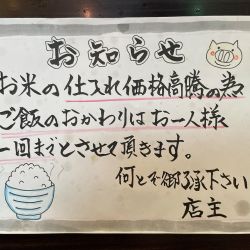 お知らせ
お米の仕入れ価格高騰の為
ご飯のおかわりはお一人様
一回までとさせて頂きます。
何とぞ御了承下さい
店主